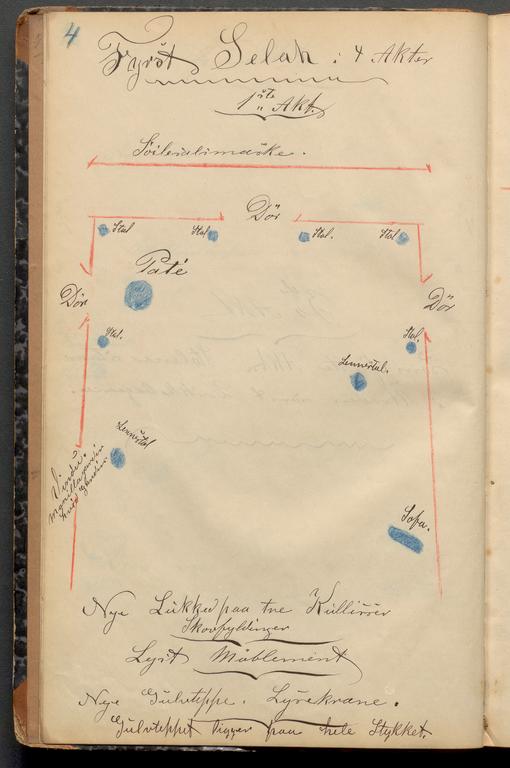 4
Fyrst Selah : 4 Akter
1ste Akt.
Dör
Stol
Stol
Stol
Stol
Paté
Dör
Dör
Stol.
Stol.
Lennestol.
Lennestol
Vindu.
hvid Gardin.
Sofa.
Nye Lükked paa tre Küllisser
Skovfyldinger
Lyst Möblement
Nye Gulvteppe. Lysekrone.
Gulvteppet ligger paa hele Stykket.